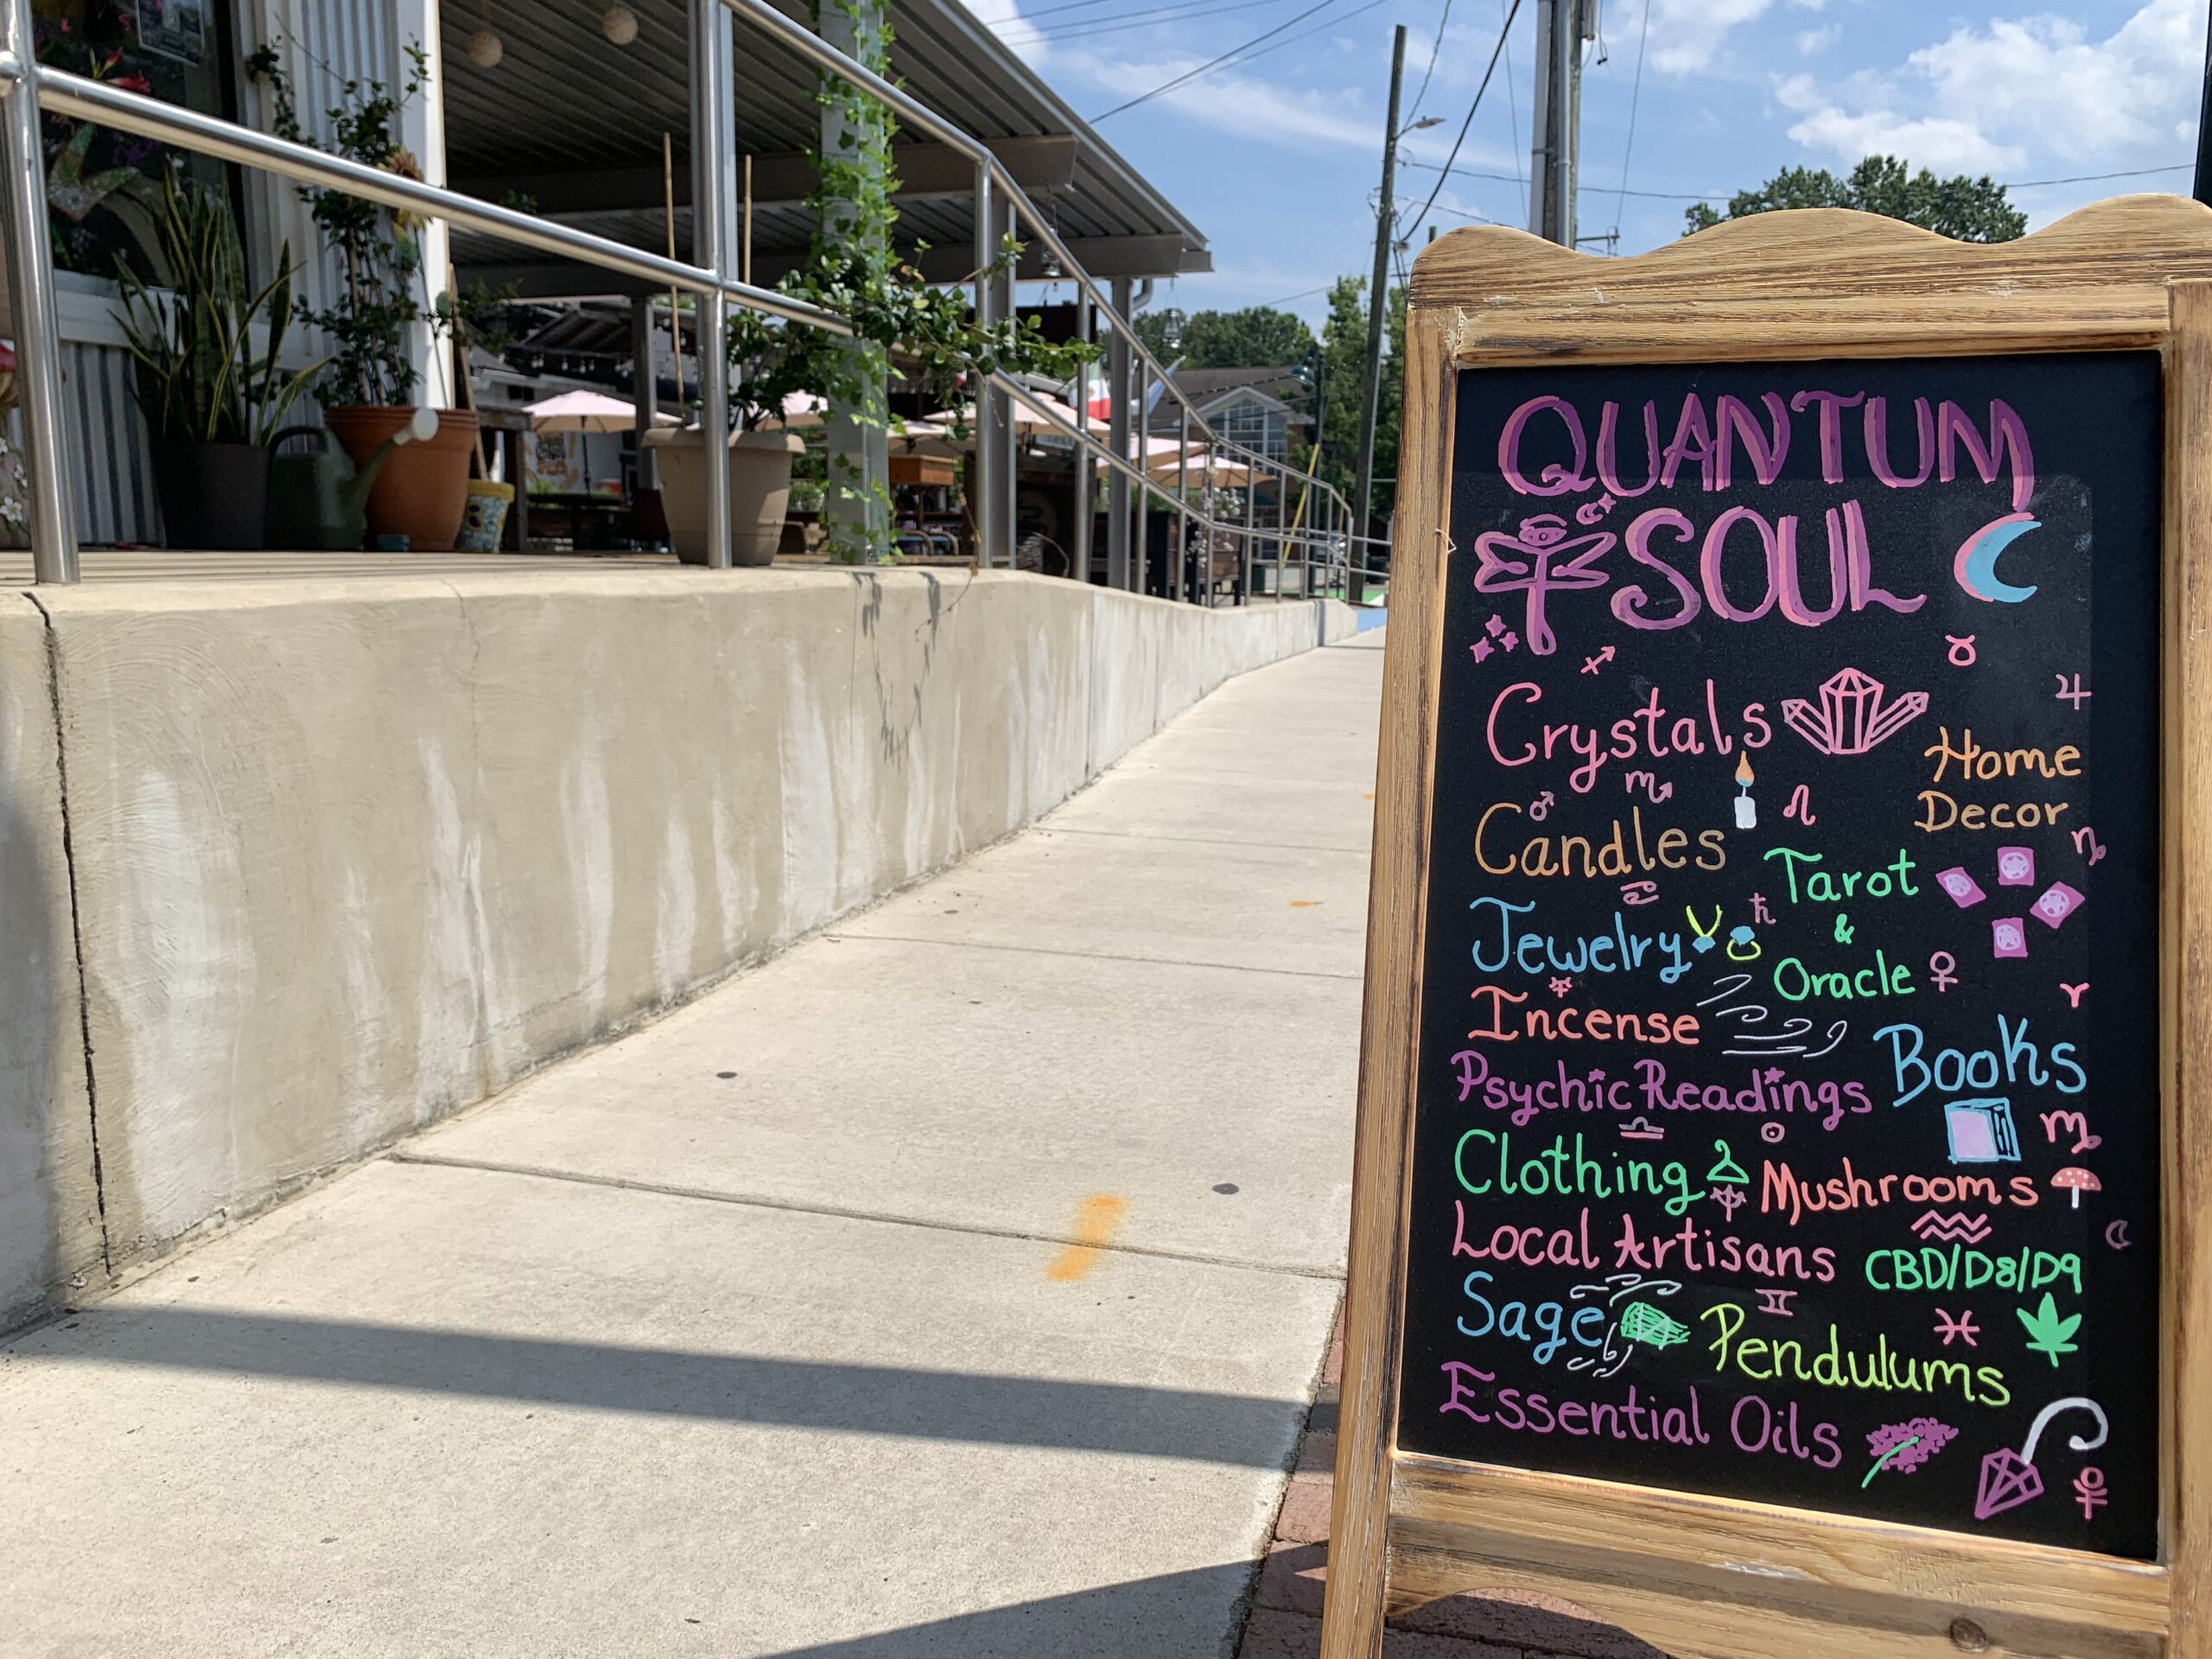 QUANTUM
SOUL
Crystals
Home
Decor
Candles
Tarot
&
Oracle
Jewelry
Incense
Books
Psychic Readings
Clothing
Mushrooms
Local Artisans
CBD/D8/D9
Sage
Pendulums
Essential Oils